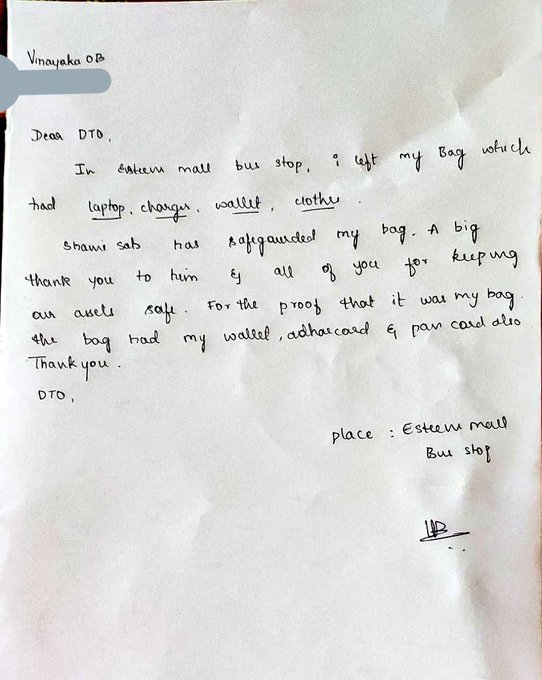 Vinayaka OB
Dear DTO,
In Esteem mall bus stop, i left my Bag which
had laptop, charger, wallet, clothe.
Shami sab has safegaurded my bag. A big
thank you to him & all of you for keeping
our assets safe. For the proof that it was my bag.
the bag had my wallet, adharcard & pan card also
Thank you.
DTO,
place : Esteem mall
Bus stop